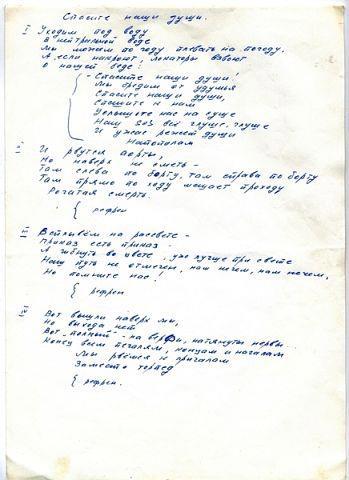 Спасите наши души.
I Уходим под воду
В нейтральной воде
Мы можем по году плевать на погоду,
А если накроют, локаторы взвоют
О нашей беде:
- Спасите наши души!
Мы бредим от удушья
Спасите наши души,
Спешите к нам
Услышьте нас на суше
Наш SOS всё глуше, глуше
И ужас режет души
Напополам
И рвутся аорты,
Но наверх не сметь -
Там слева по борту, там справа по борту
Там прямо по ходу мешает проходу
Рогатая смерть.
{ рефрен
Всплывём на рассвете -
Приказ есть приказ.
А гибнуть во цвете, уж лучше при свете
Наш путь не отмечен, нам нечем, нам нечем,
Но помните нас!
{ рефрен
IV Вот вышли наверх мы,
Но выхода нет
Вот - полный - на верфи, натянуты нервы
Конец всем печалям, концам и началам
Мы рвёмся к причалам
Заместо торпед
{ рефрен.